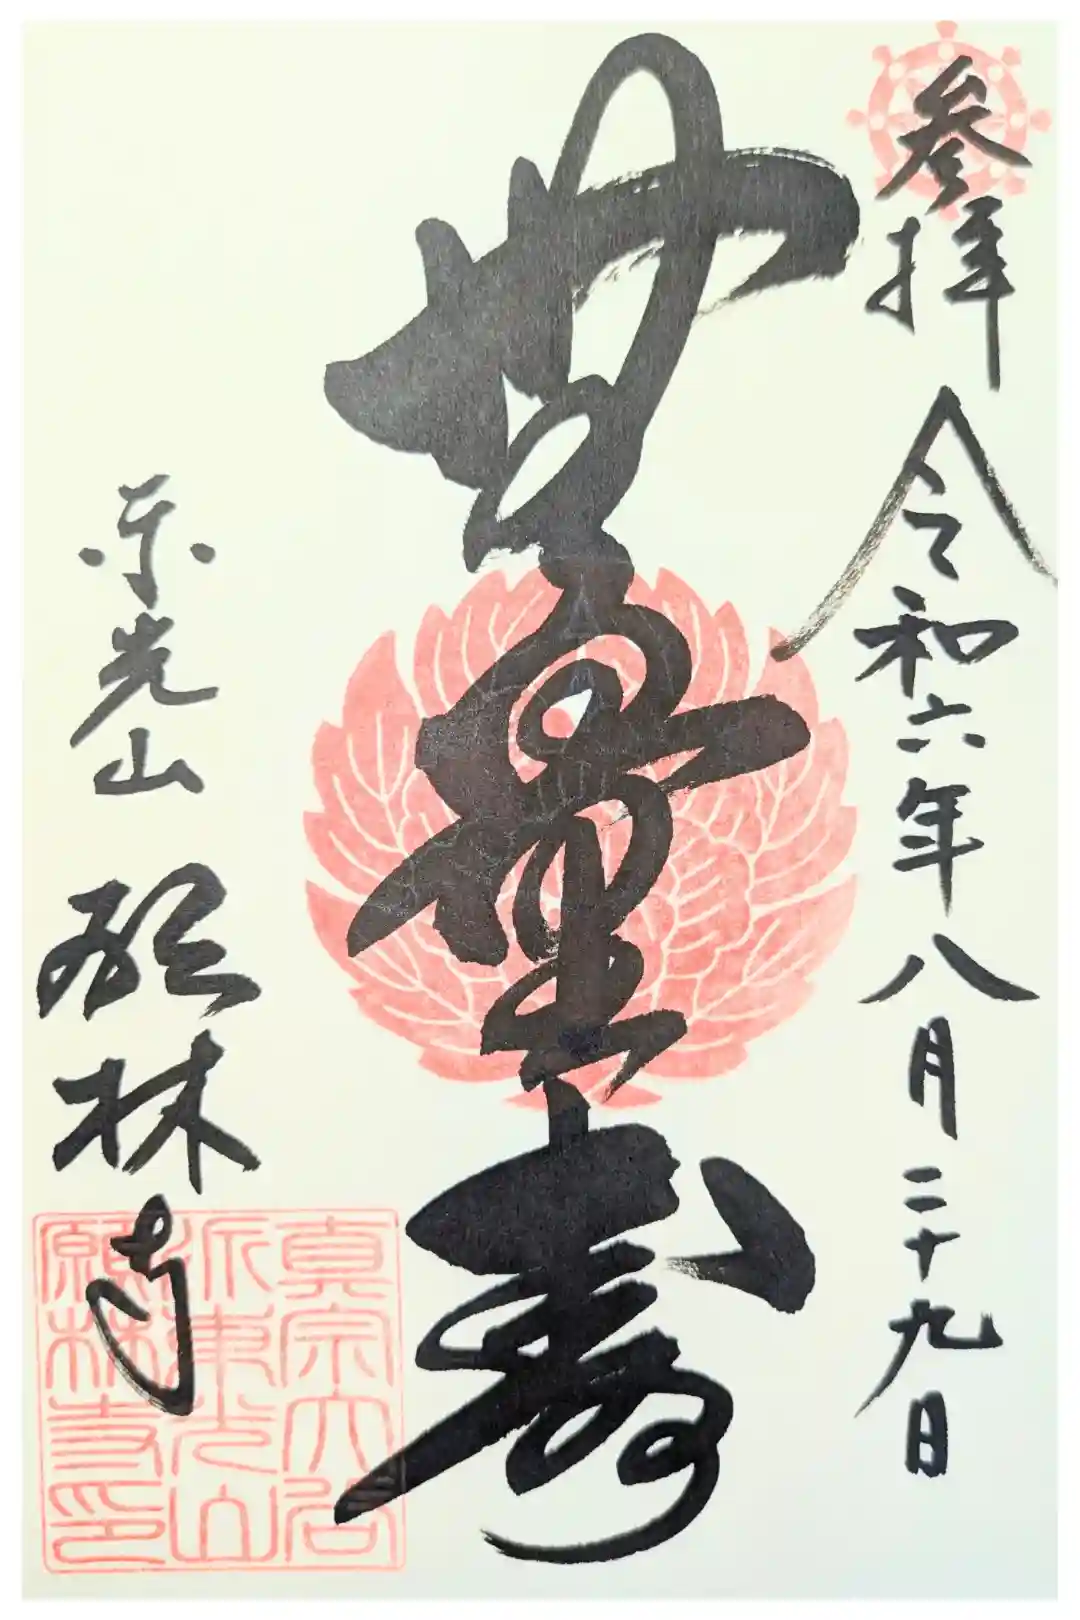 参拝 令和六年八月二十九日
無量寿
東光山 願林寺
真宗大谷
派東光山
願林寺印